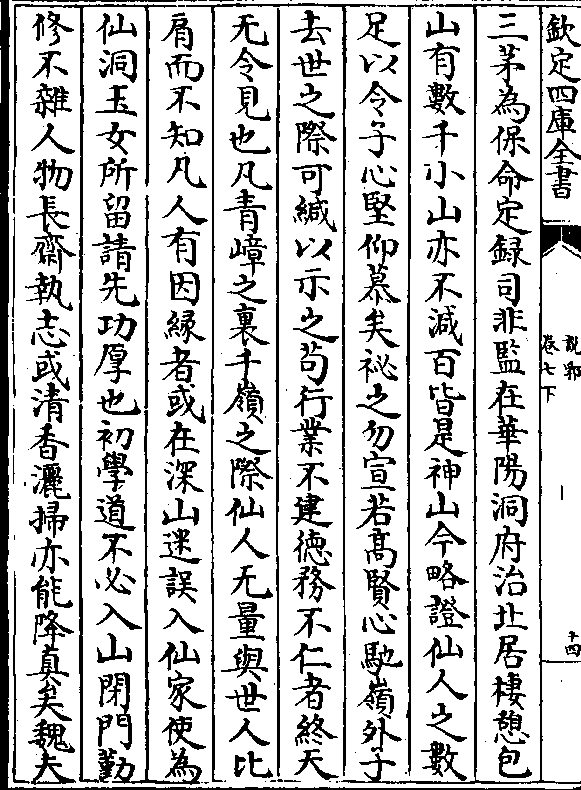 欽定四庫全書
說郛
卷七下
十四
三茅為保命定録司非監在華陽洞府治北居棲憩包
山有數千小山亦不減百皆是神山今略證仙人之數
足以令子心堅仰慕矣祕之勿宣若髙賢心馳嶺外子
去世之際可緘以示之苟行業不建徳務不仁者終天
无令見也凡青嶂之裏千嶺之際仙人无量與世人比
肩而不知凡人有因縁者或在深山迷誤入仙家使為
仙洞玉女所留請先功厚也初學道不必入山閉門勤
修不雜人物長齋執志或清香灑掃亦能降真矣魏夫